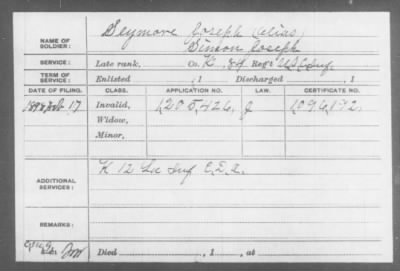 Seymore Joseph (alias)
NAME OF SOLDIER: Simon Joseph
SERVICE: Late rank, Co. K, 84 Reg't U.S.C. Inf.
TERM OF SERVICE: Enlisted , 1 Discharged , 1
DATE OF FILING. CLASS. APPLICATION NO. LAW. CERTIFICATE NO.
1898 Feb 17 Invalid, 1,205,426, 1,096,192,
Widow,
Minor,
ADDITIONAL SERVICES: K 12 La Inf C.D.A.
REMARKS:
Died , 1 , at